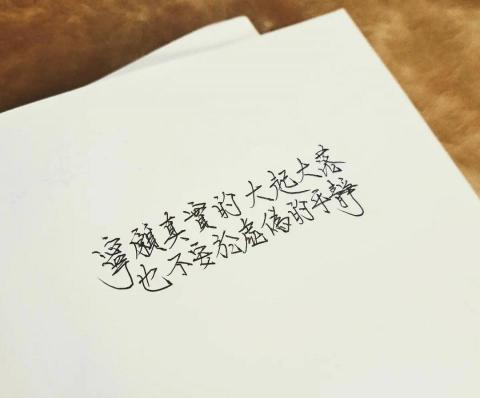 寧願真實的大起大落
也不安於虛偽的平靜